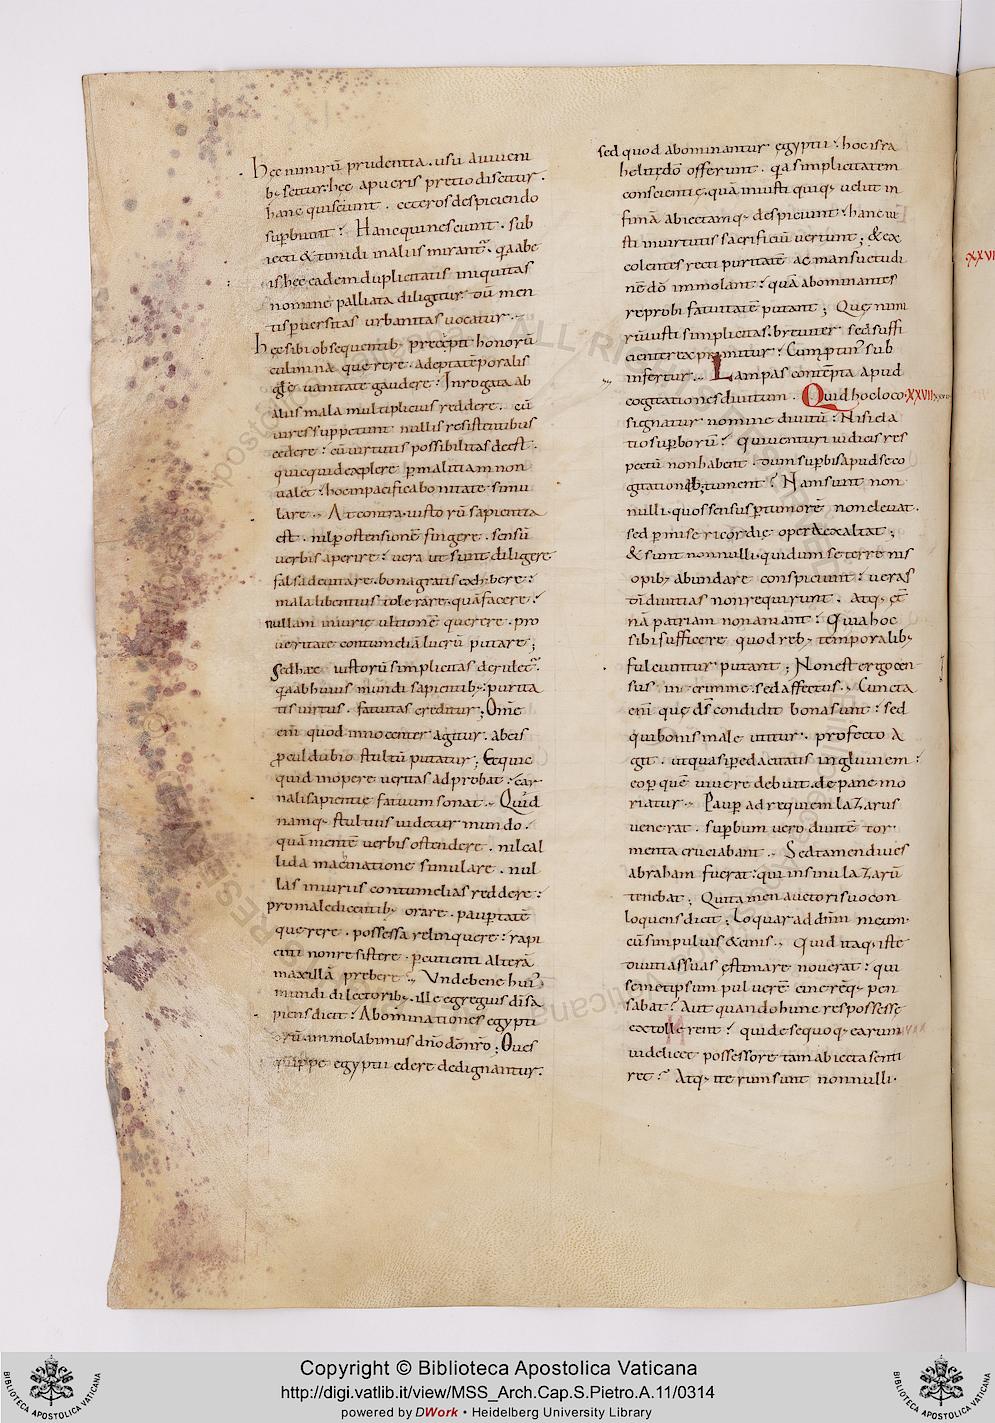 Hęc nimirū prudentia . usu a iuueni
b; scitur. hęc a pueris pretio discitur .
hanc qui sciunt . ceteros despiciendo
superbiunt : Hanc qui nesciunt . sub
iecti & timidi in aliis mirant᷒ . q̄a ab e
is hęc eadem duplicitatis iniquitas
nomine palliata diligitur dū men
tis puersitas urbanitas uocatur .
Hęc sibi obsequentib; pręcipit honorū
culmina quęrere . adepta tēporalis
glę uanitate gaudere : Inrogata ab
aliis mala multiplicius reddere . cū
uires suppetunt nullis resistentibus
cedere : cū uirtutis possibilitas deest .
quicquid explere p malitiam non
ualet : hoc in pacifica bonitate simu
lare . At contra . iustorū sapientia
est . nil p ostensionē fingere . sensū
uerbis aperire : uera ut sunt diligere
falsa deuitare . bona gratis exhibere :
mala libentius tolerare . quā facere :
nullam iniurię ultionē quęrere . pro
ueritate contumeliā lucrū putare ;
Sed hęc iustorū simplicitas deridet᷒ .
q̄a ab huius mundi sapientib; . purita
tis uirtus . fatuitas creditur ; Om̄e
eni̅ quod innocenter agitur . ab eis
p̄cul dubio stultū putatur ; Et quic
quid in opere ueritas adprobat : car
nali sapientię fatuum sonat . Quid
namq; stultius uidetur mundo .
quā mentē uerbis ostendere . nil cal
lida machinatione simulare . nul
las iniuriis contumelias reddere :
pro maledicentib; orare . paupertatē
quęrere . possessa relinquere : rapi
enti non resistere . percutienti alterā
maxillā prebere . Unde bene hui᷒
mundi dilectorib; . ille egregius dī sa
piens dicit : Abominationes egypti
orū immolabimus dn̄o dō nr̄o ; Oues
quippe egyptii edere dedignantur .
sed quod abominantur ęgyptii : hoc isra
helitę dō offerunt . q̄a simplicitatem
conscientię . quā iniusti quiq; uelut in
fimā abiectamq; despiciunt : hanc iu
sti in uirtutis sacrificiū uertunt ; & ex
colentes recti puritatē ac mansuetudi
nē dō immolant : quā abominantes
reprobi fatuitatē putant ; Quę nimi
rū iusti simplicitas . breuiter sed suffi
cienter exprimitur : Cum ptin᷒ sub
infertur . Lampas contēpta apud
cogitationes diuitum . Quid hoc loco XXVII
signatur nomine diuitū : Nisi ela
tio superborū : Qui uenturi iudicis res
pectū non habent . dum superbis apud se co
gitationib; tument : Nam sunt non
nulli . quos sensus p tumorē non eleuat .
sed p misericordię opera exaltat ;
& sunt nonnulli . qui dum se terrenis
opib; abundare conspiciunt : ueras
dī diuitias non requirunt . Atq; ęt̄
nā patriam non amant : Quia hoc
sibi sufficere quod reb; temporalib;
fulciuntur putant ; Non est ergo cen
sus in crimine . sed affectus . Cuncta
eni̅ quę ds̄ condidit bona sunt : sed
qui bonis male utitur . profecto a
git . ut quasi p edacitatis ingluuiem :
eo p quē uiuere debuit . de pane mo
riatur . Pauper ad requiem lazarus
uenerat . superbum uero diuitē tor
menta cruciabant . Sed tamen diues
abraham fuerat : qui in sinu lazarū
tenebat ; Qui tamen auctori suo con
loquens dicit ; Loquar ad dn̄m meum .
cū sim puluis & cinis . Quid itaq; iste
diuitias suas ęstimare nouerat : qui
semetipsum puluerē cinerēq; pen
sabat : Aut quando hunc res possesse
extollerent : qui de se quoq; earum
uidelicet possessore tam abiecta senti
ret : Atq; iterum sunt nonnulli .
Copyright © Biblioteca Apostolica Vaticana
http://digi.vatlib.it/view/MSS_Arch.Cap.S.Pietro.A.11/0314
powered by DWork • Heidelberg University Library
BIBLIOTECA APOSTOLICA VATICANA
BIBLIOTECA APOSTOLICA VATICANA